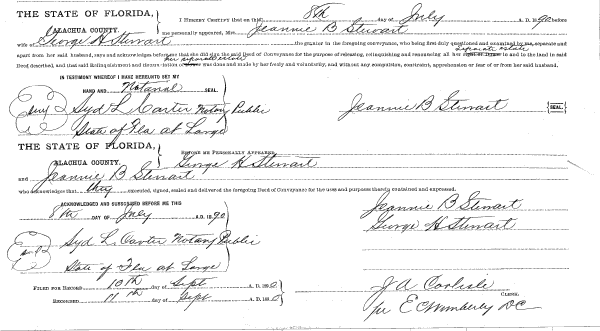 THE STATE OF FLORIDA, I HEREBY CERTIFY that on this 8th day of July A. D. 1890 before
ALACHUA COUNTY. me personally appeared, Mrs. Jeannie B Stewart
wife of George H Stewart the grantor in the foregoing conveyance, who being first duly questioned and examined by me, separate and
separate estate
apart from her said husband, says and acknowledges before me that she did sign the said Deed of Conveyance for the purpose of releasing, relinquishing and renouncing all her in and to the land in said
her separate estate
Deed described, and that said Relinquishment and was done and made by her freely and voluntarily, and without any compulsion, constraint, apprehension or fear of or from her said husband.
IN TESTIMONY WHEREOF I HAVE HEREUNTO SET MY
HAND AND Notarial SEAL.
Syd L. Carter Notary Public Jeannie B Stewart {SEAL.}
State of Fla at Large
THE STATE OF FLORIDA, BEFORE ME PERSONALLY APPEARED
ALACHUA COUNTY. George H Stewart
and Jeannie B Stewart
who acknowledge that they executed, signed, sealed and delivered the foregoing Deed of Conveyance for the uses and purposes therein contained and expressed.
ACKNOWLEDGED AND SUBSCRIBED BEFORE ME THIS Jeannie B Stewart
8th DAY OF July A. D. 1890 George H Stewart
Syd L. Carter Notary Public
State of Fla at Large
FILED FOR RECORD 10th day of Sept A. D. 1890 J A Carlisle
CLERK.
RECORDED 11th day of Sept A. D. 1890 per E C Wimberly DC